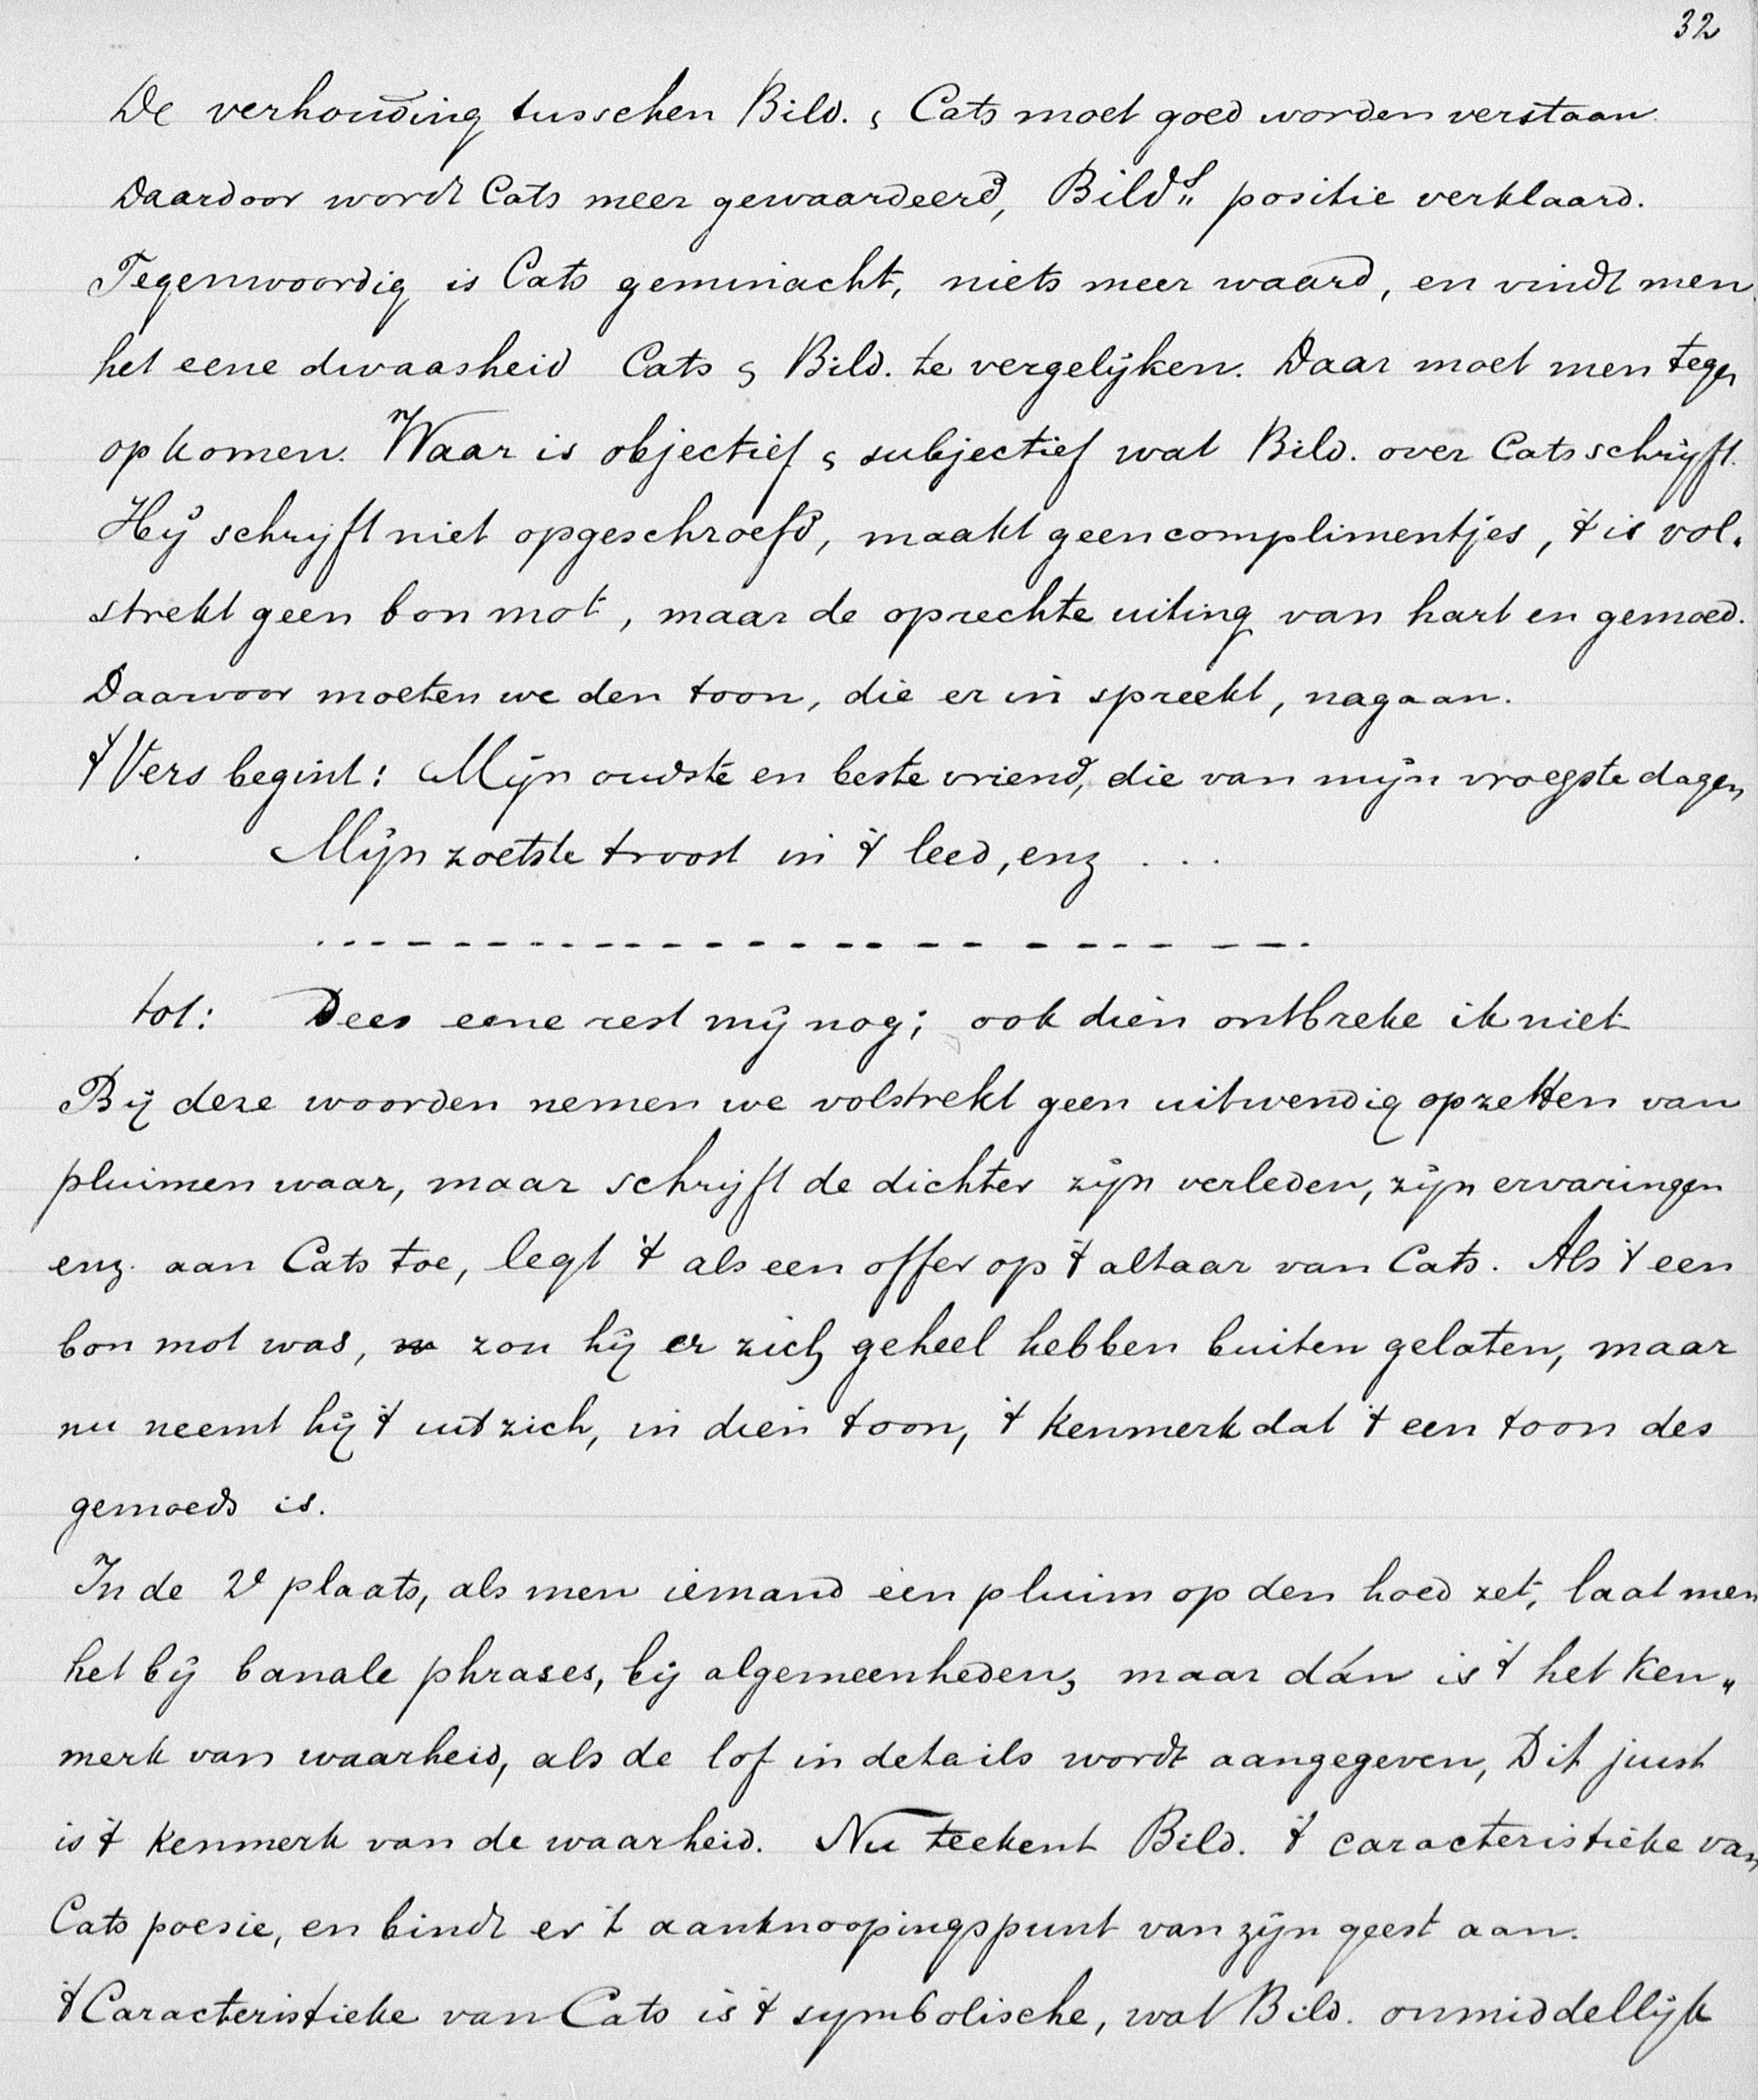 32
De verhouding tusschen Bild. & Cats moet goed worden verstaan.
Daardoor wordt Cats meer gewaardeerd, Bild.s positie verklaard.
Tegenwoordig is Cats geminacht, niets meer waard, en vindt men
het eene dwaasheid Cats & Bild. te vergelijken. Daar moet men tegen
opkomen. Waar is objectief & subjectief wat Bild. over Cats schrijft.
Hij schrijft niet opgeschroefd, maakt geen complimentjes, 't is vol-
strekt geen bon mot, maar de oprechte uiting van hart en gemoed.
Daarvoor moeten we den toon, die er in spreekt, nagaan.
't Vers begint: Mijn oudste en beste vriend, die van mijn vroegste dagen
Mijn zoetste troost in 't leed, enz ...
tot: Dees eene rest mij nog; ook dien ontbreke ik niet
Bij deze woorden nemen we volstrekt geen uitwendig opzetten van
pluimen waar, maar schrijft de dichter zijn verleden, zijn ervaringen
enz. aan Cats toe, legt 't als een offer op 't altaar van Cats. Als 't een
bon mot was, zou hij er zich geheel hebben buiten gelaten, maar
nu neemt hij 't uit zich, in dien toon, 't kenmerk dat 't een toon des
gemoeds is.
In de 2e plaats, als men iemand een pluim op den hoed zet, laat men
het bij banale phrases, bij algemeenheden, maar dán is 't het ken-
merk van waarheid, als de lof in details wordt aangegeven, Dit juist
is 't kenmerk van de waarheid. Nu teekent Bild. 't caracteristieke van
Cats poesie, en bindt er 't aanknoopingspunt van zijn geest aan.
't Caracteristieke van Cats is 't symbolische, wat Bild. onmiddellijk